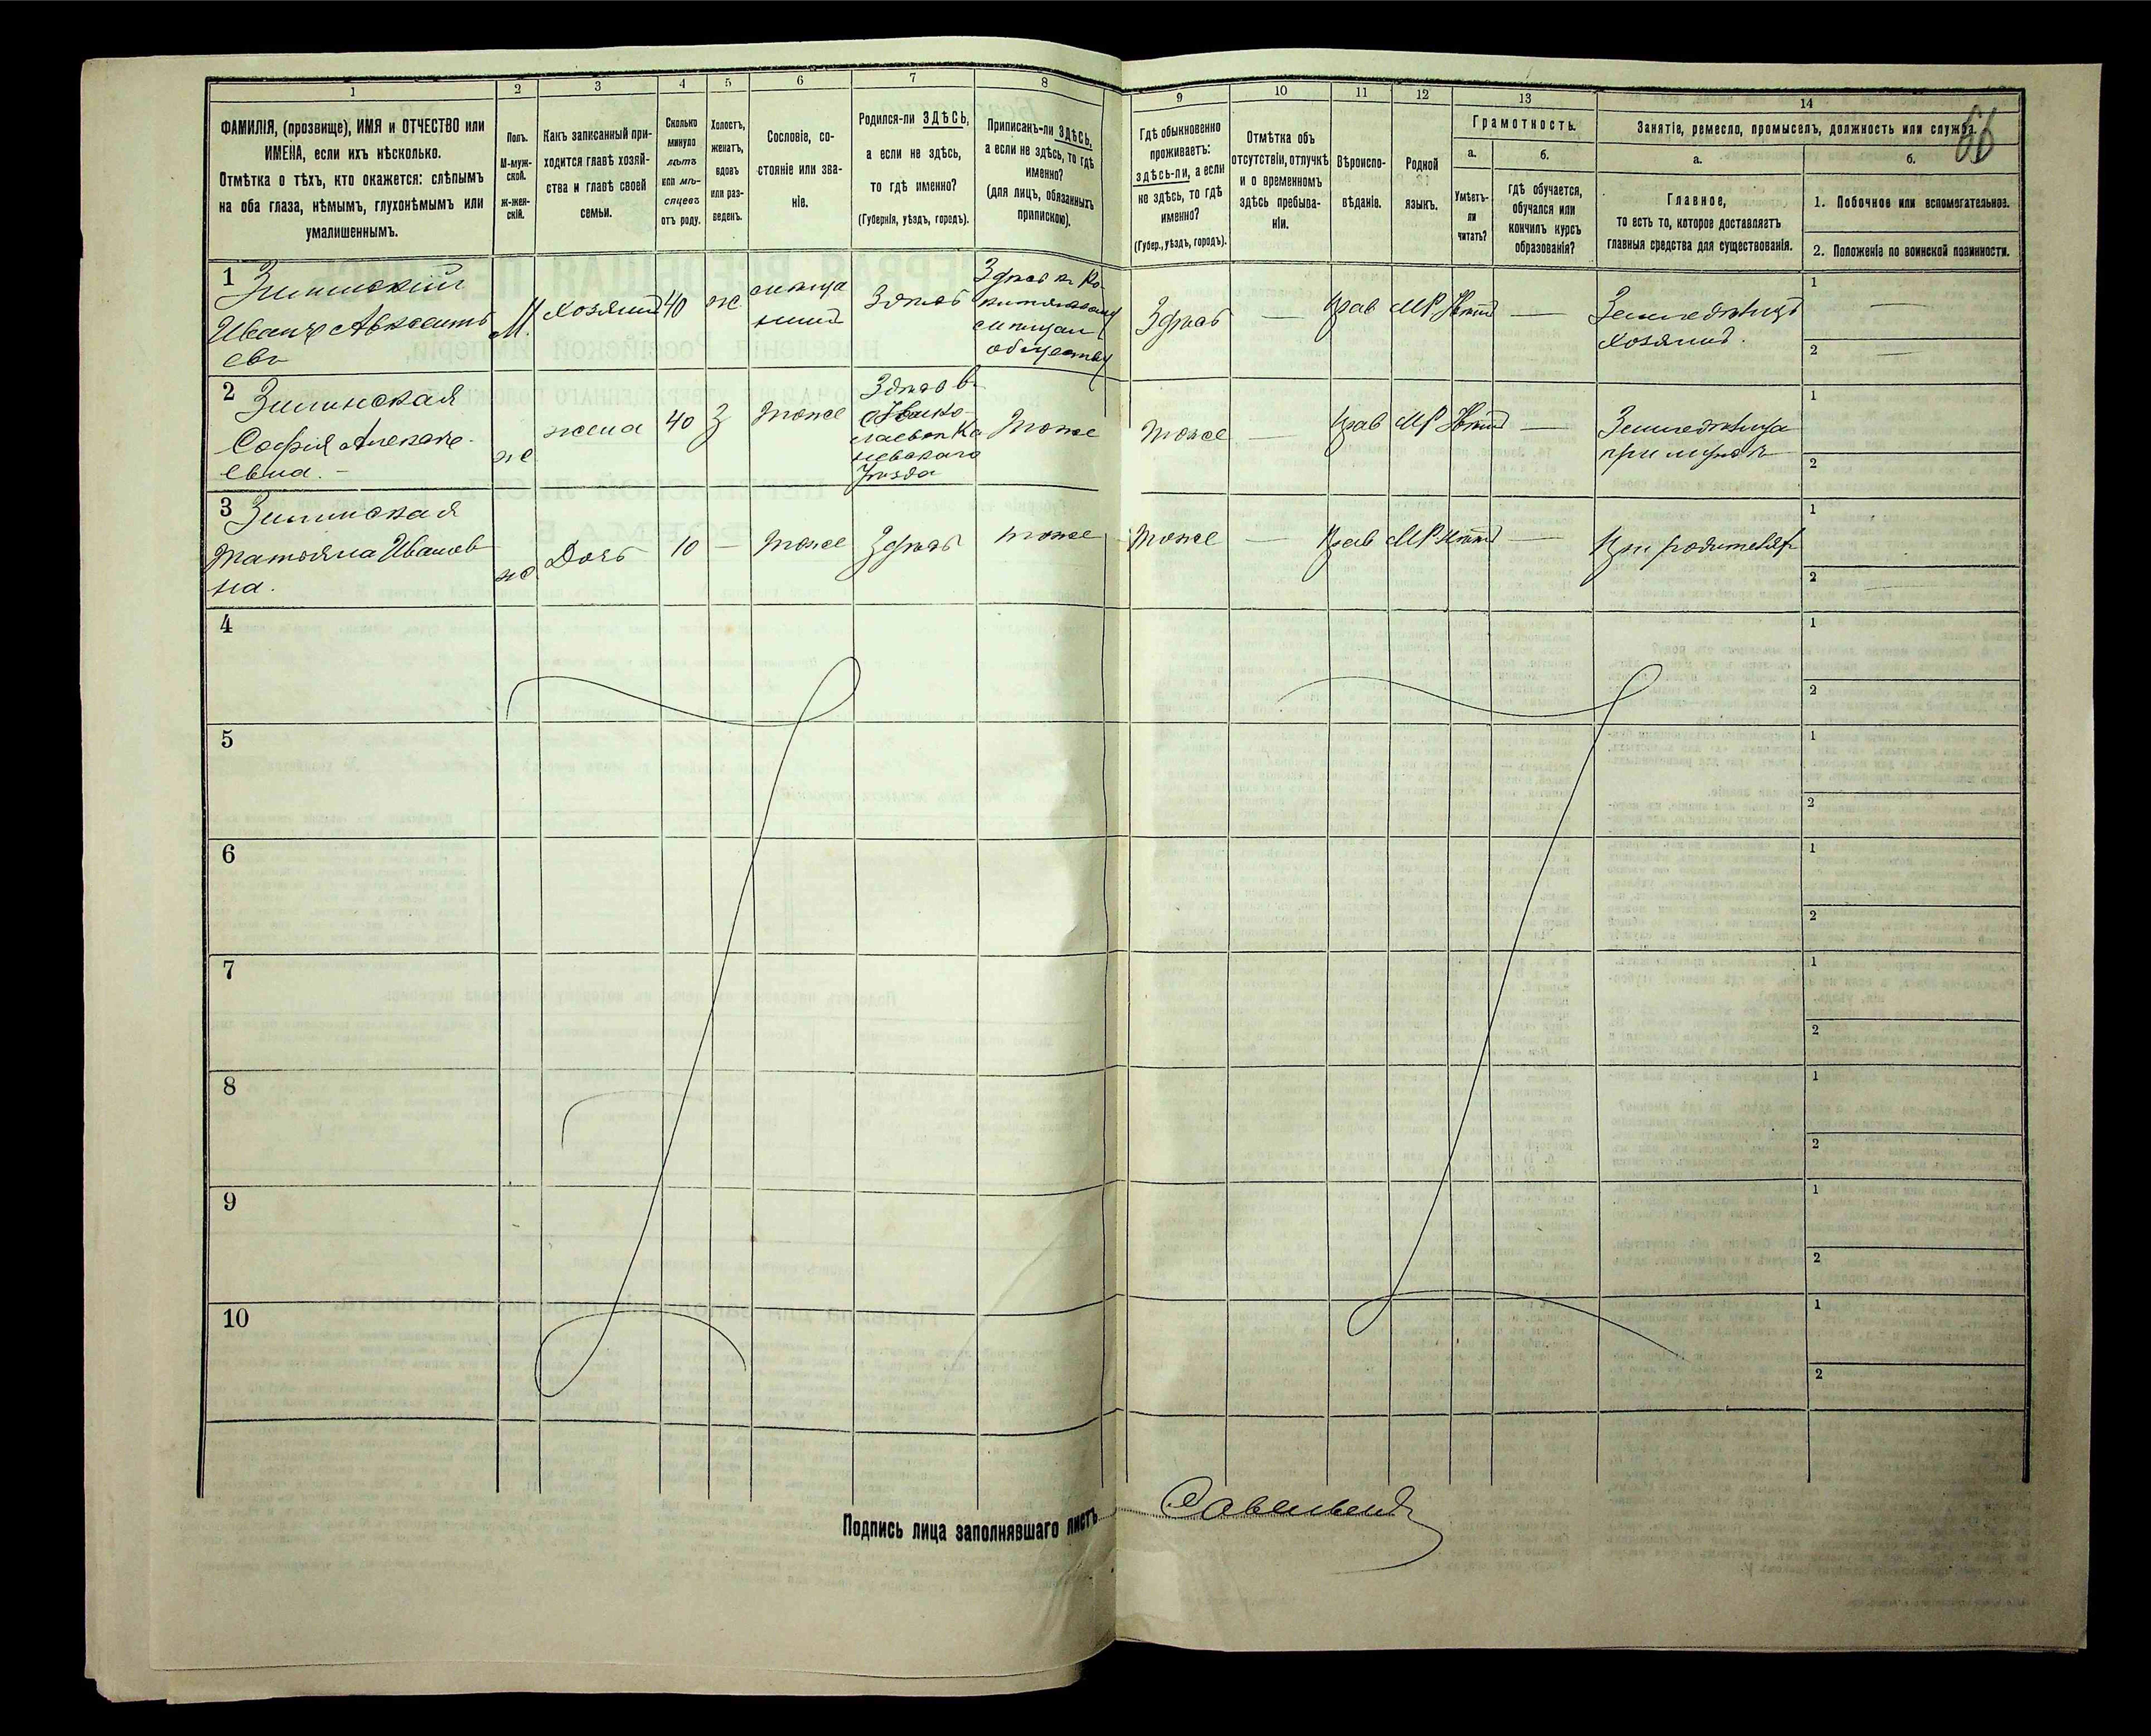 1
2
3
4
5
6
7
8
ФАМИЛІЯ, (прозвище), ИМЯ и ОТЧЕСТВО или
ИМЕНА, если ихъ нѣсколько.
Отмѣтка о тѣхъ, кто окажется: слѣпымъ
на оба глаза, нѣмымъ, глухонѣмымъ или
умалишеннымъ.
Полъ.
М-муж-
ской.
Ж-жен-
скій.
Какъ записанный при-
ходится главѣ хозяй-
ства и главѣ своей
семьи.
Сколько
минуло
лѣтъ
или мѣ-
сяцевъ
отъ роду.
Холостъ,
женатъ,
вдовъ
или раз-
веденъ.
Сословіе, со-
стояніе или зва-
ніе.
Родился-ли ЗДѢСЬ,
а если не здѣсь,
то гдѣ именно?
(Губернія, уѣздъ, городъ).
Приписанъ-ли ЗДѢСЬ,
а если не здѣсь, то гдѣ
именно?
(для лицъ, обязанныхъ
припискою).
9
10
11
12
13
14
66
Гдѣ обыкновенно
проживаетъ:
здѣсь-ли, а если
не здѣсь, то гдѣ
именно?
(Губер., уѣздъ, городъ).
Отмѣтка объ
отсутствіи, отлучкѣ
и о временномъ
здѣсь пребыва-
ніи.
Вѣроиспо-
вѣданіе.
Родной
языкъ.
Грамотность.
а.
Умѣетъ-
ли
читать?
б.
гдѣ обучается,
обучался или
кончилъ курсъ
образованія?
Занятіе, ремесло, промыселъ, должность или служба.
а.
Главное,
то есть то, которое доставляетъ
главныя средства для существованія.
б.
1. Побочное или вспомогательное.
2. Положеніе по воинской повинности.
1
Зилинский
Иванъ Авксенть
евъ
М.
хозяинъ
40
ж
мѣща
нинъ
Здѣсь
Здѣсь къ
мѣщан
обществу
Здѣсь
—
Прав
МР
Нѣтъ
—
Земледѣлецъ
хозяинъ.
1 —
2 —
2
Зилинская
София Алексѣ-
евна. –
ж
жена
40
З
тоже
Уѣзда
тоже
тоже
—
Прав
МР
Нѣтъ
—
Земледѣлица
при мужѣ
1
2
3
Зилинская
Татьяна Иванов
на.
ж
Дочь
10
—
тоже
Здѣсь
тоже
тоже
—
Прав
МР
Нѣтъ
—
При родителях
1
2
4
1
2
5
1
2
6
1
2
7
1
2
8
1
2
9
1
2
10
1
2
Подпись лица заполнявшаго листъ